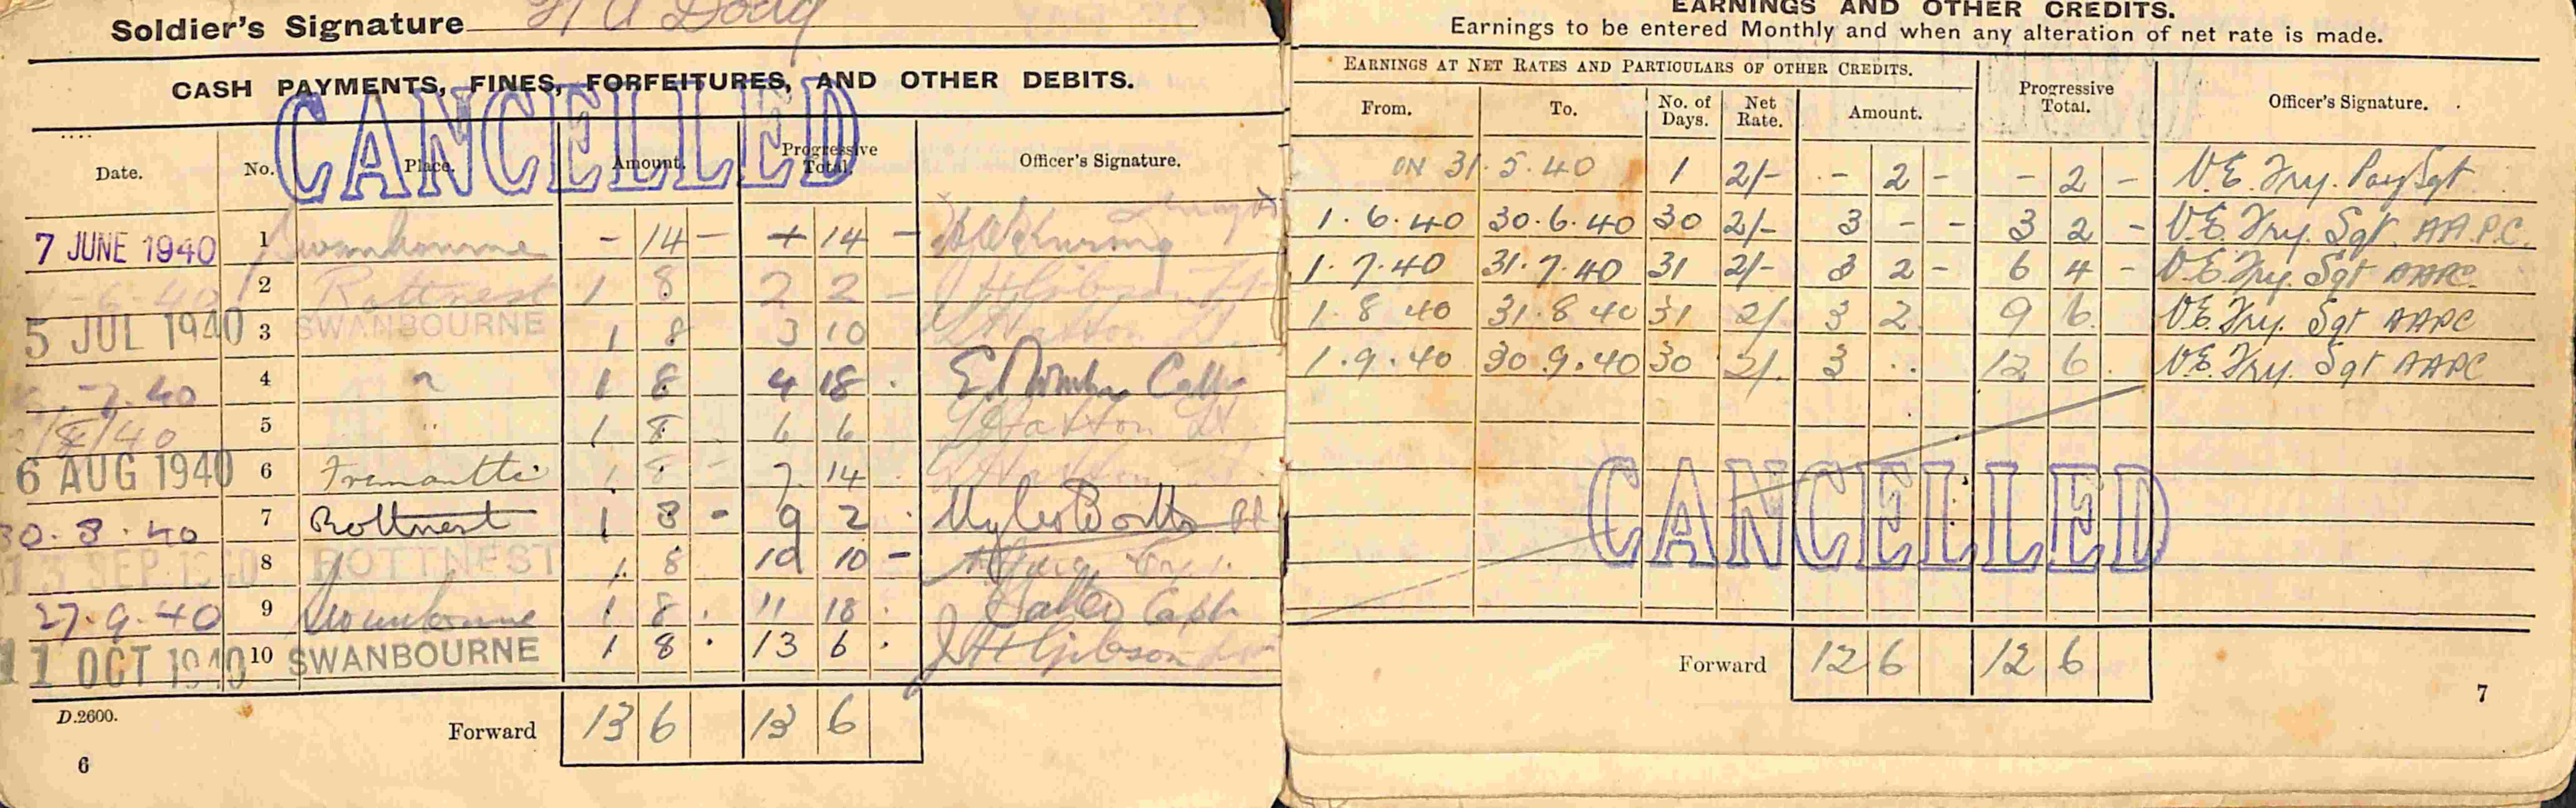 Soldier's Signature H A Dodg
CASH PAYMENTS, FINES, FORFEITURES, AND OTHER DEBITS.
CANCELLED
Date. No. Place. Amount. Progressive Total. Officer's Signature.
7 JUNE 1940 1 Swanbourne - 14 - + 14 -
6-40 2 Rottnest 1 8 2 2 - J H Gibson Lt
5 JUL 1940 3 SWANBOURNE 1 8 3 10 Hatton Lt.
7.40 4 " 1 8 4 18 .
/8/40 5 " 1 8 6 6 Hatton Lt
6 AUG 1940 6 Fremantle 1 8 - 7 14
30.8.40 7 Rottnest 1 8 - 9 2 .
13 SEP 1940 8 ROTTNEST 1 8 10 10 -
27.9.40 9 Swanbourne 1 8 . 11 18 . Capt
11 OCT 1940 10 SWANBOURNE 1 8 . 13 6 . J H Gibson
D.2600. Forward 13 6 13 6
6
EARNINGS AND OTHER CREDITS.
Earnings to be entered Monthly and when any alteration of net rate is made.
EARNINGS AT NET RATES AND PARTICULARS OF OTHER CREDITS.
From. To. No. of Days. Net Rate. Amount. Progressive Total. Officer's Signature.
ON 31.5.40 1 2/- - 2 - - 2 - V.E. Fry. Pay Sgt
1.6.40 30.6.40 30 2/- 3 - - 3 2 - V.E. Fry. Sgt. AA.P.C.
1.7.40 31.7.40 31 2/- 3 2 - 6 4 - V.E. Fry. Sgt AAPC.
1.8 40 31.8 40 31 2/ 3 2 9 6 V.E. Fry. Sgt AAPC
1.9.40 30.9.40 30 2/. 3 . . 12 6 . V.E. Fry. Sgt AAPC
CANCELLED
Forward 12 6 12 6
7